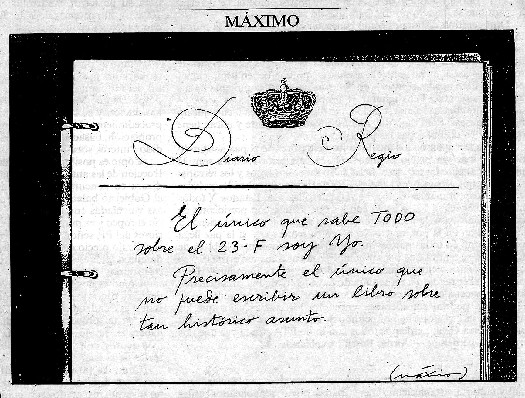 MÁXIMO
Diario Regio
El único que sabe TODO
sobre el 23-F soy Yo.
Precisamente el único que
no puede escribir un libro sobre
tan histórico asunto.
(máximo)